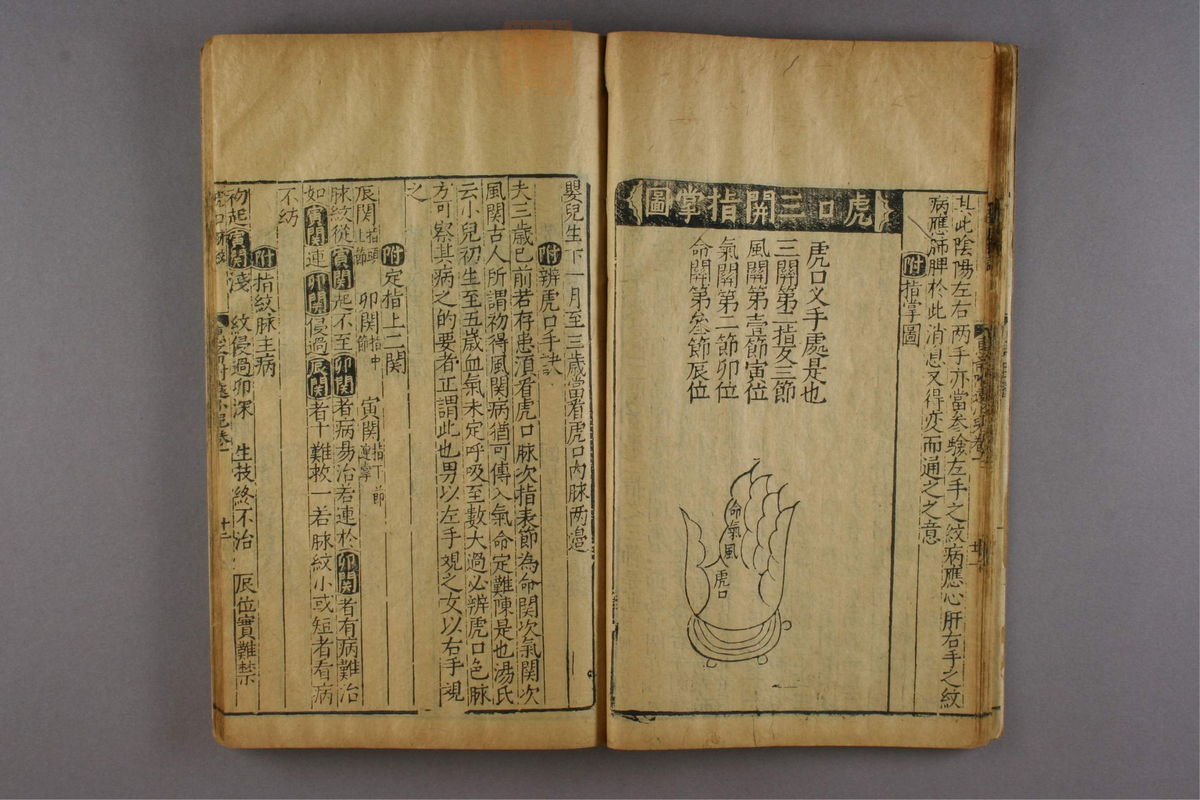 其此陰陽左右两手亦當叅騐左手之紋病應心肝右手之紋
病應肺脾於此消息又得変而通之之意
附 指掌圖
虎口三關指掌圖
虎口叉手處是也
三關第二指叉三節
風關第壹節寅位
氣關第二節卯位
命關第叁節辰位
命氣風
虎口
嬰兒生下一月至三歲當看虎口内脉两邉
附 辨虎口手訣
夫三歲已前若存患湏看虎口脉次指表節為命関次氣関次
風関古人所謂初得風関病猶可傳入氣命定難陳是也湯氏
云小兒初生至五歲血氣未定呼吸至數大過必辨虎口色脉
方可察其病之的要者正謂此也男以左手視之女以右手視
之
附 定指上三関
辰関指頭上節 卯関指中節 寅関指下節連掌
脉紋從寅関起不至卯関者病易治若連於卯関者有病難治
如寅関連卯関侵過辰関者十難救一若脉紋小或短者看病
不妨
附 指紋脉主病
初起寅関淺 紋侵過卯深 生技終不治 辰位實難禁